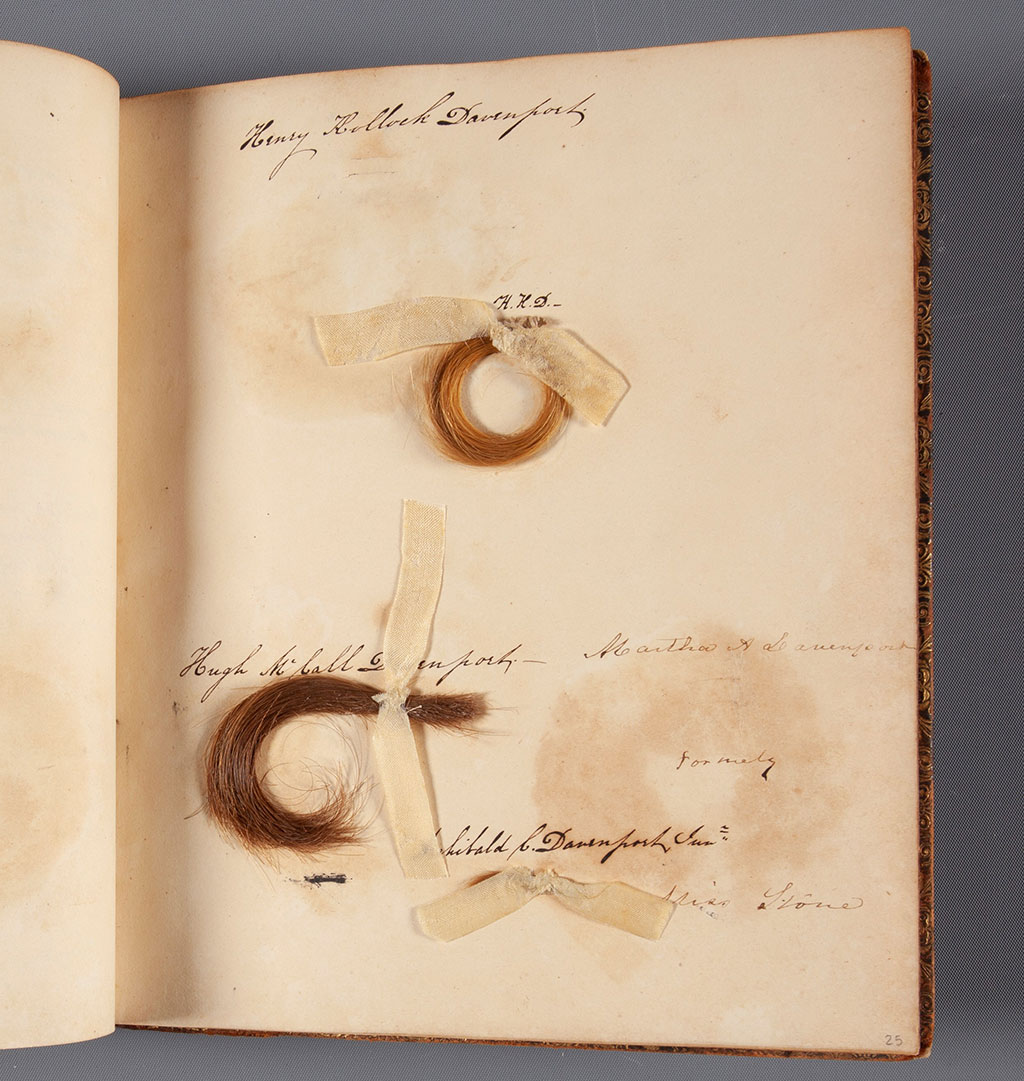 Henry Kollock Davenport.
H.K.D.—
Hugh McCall Davenport.—
Martha A Davenport
formely
Archibald C. Davenport, Junr
Miss Stone
25